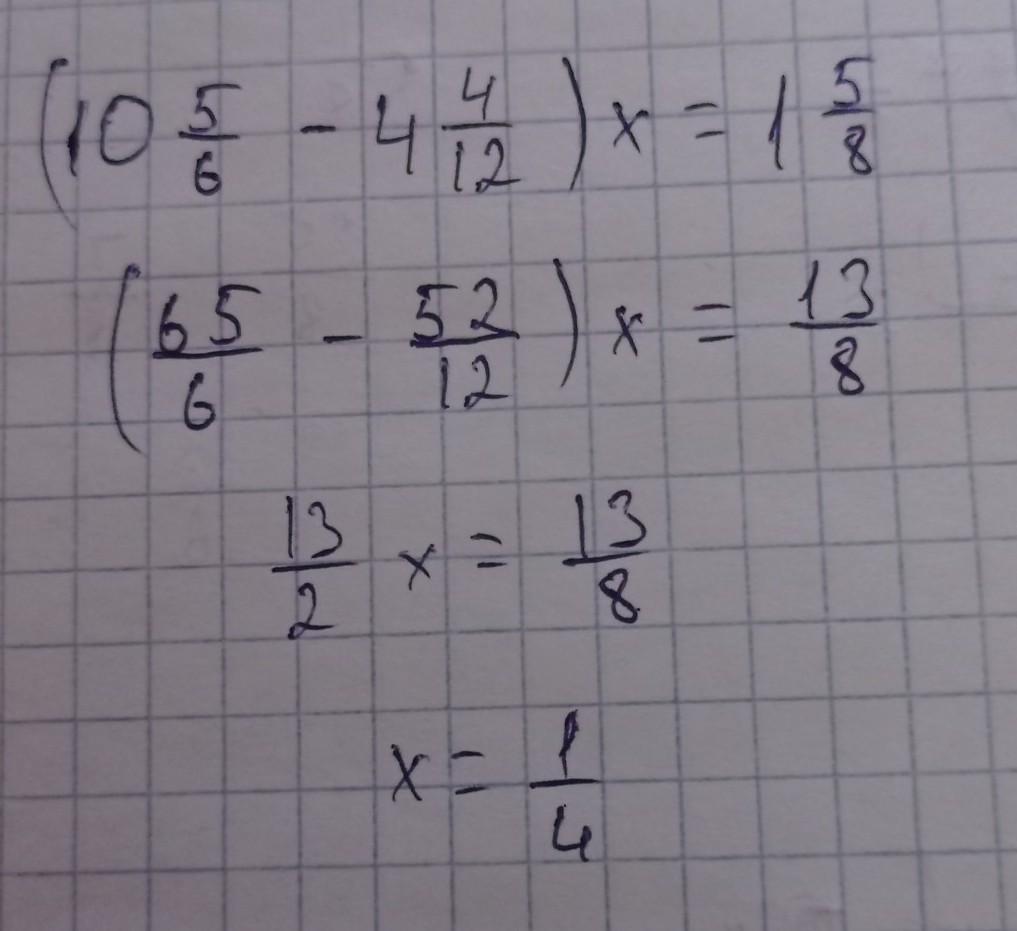 (10 5/6 - 4 4/12) x = 1 5/8
(65/6 - 52/12) x = 13/8
13/2 x = 13/8
x = 1/4